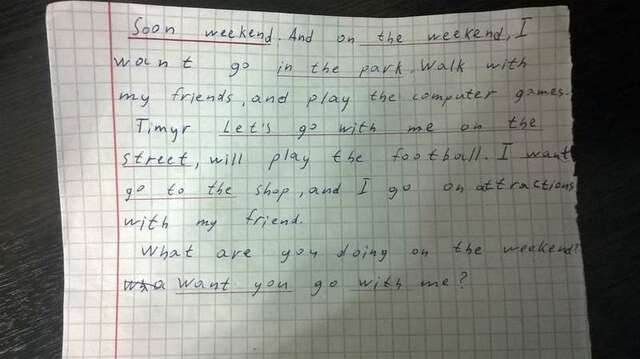 Soon weekend. And on the weekend, I
want go in the park. Walk with
my friends, and play the computer games.
Timyr Let's go with me on the
street, will play the football. I want
go to the shop, and I go on attractions
with my friend.
What are you doing on the weekend?
Want you go with me?